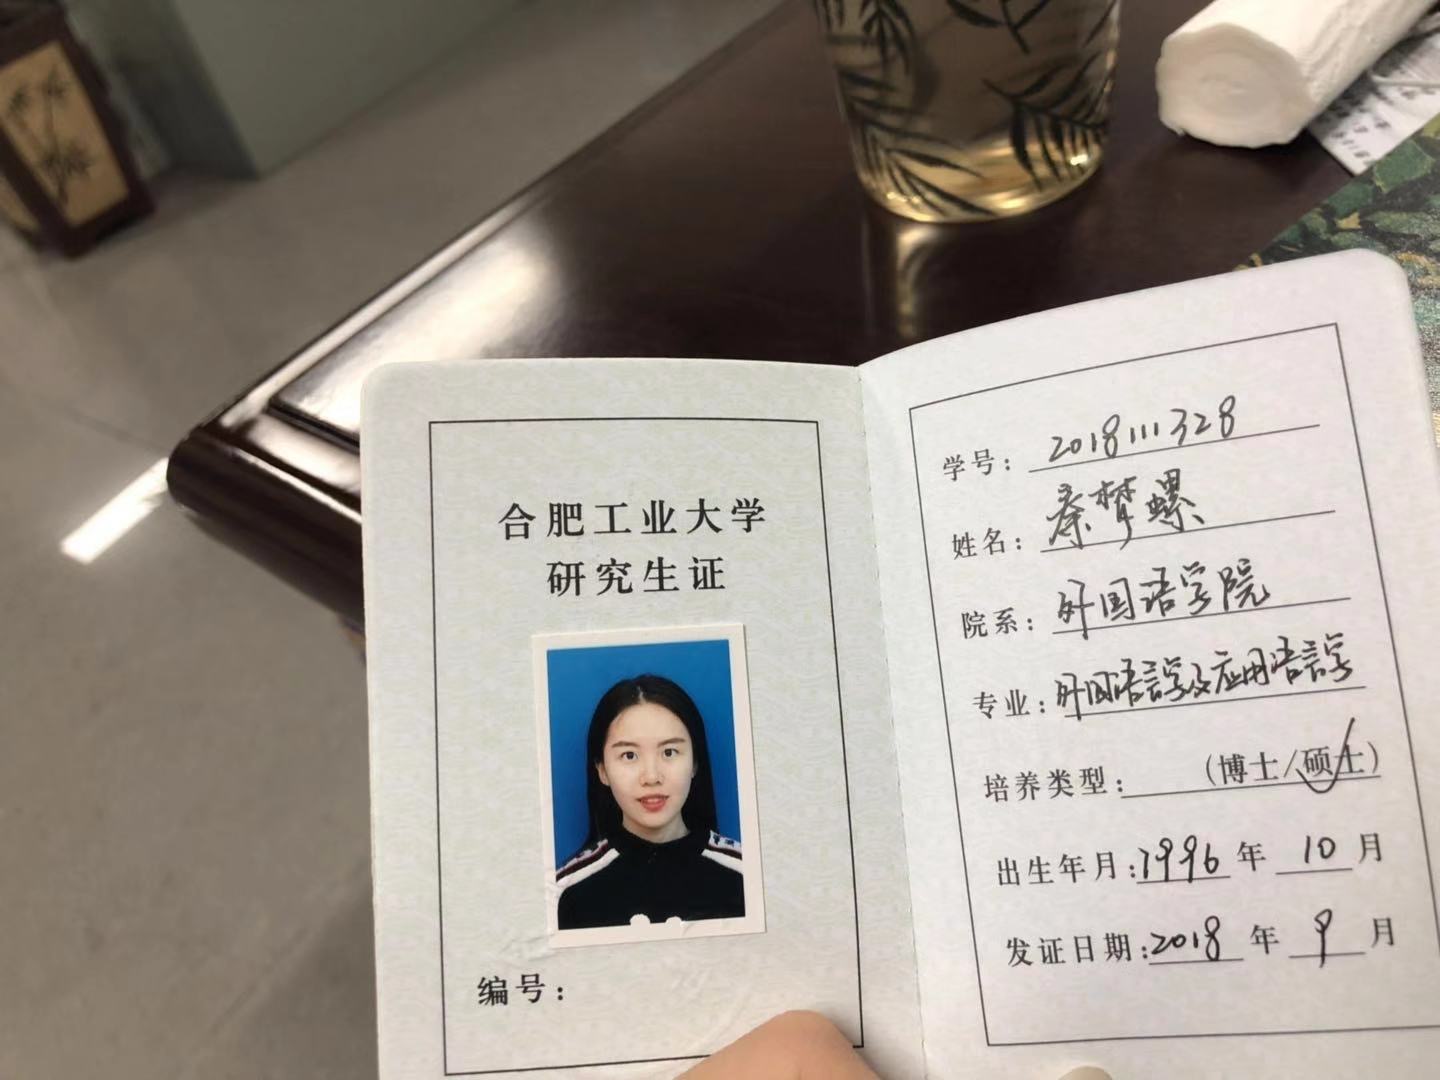 合肥工业大学
研究生证
编号：
学号：2018111328
姓名：秦梦螺
院系：外国语学院
专业：外国语言学及应用语言学
培养类型：（博士/硕士）
出生年月：1996年10月
发证日期：2018年9月